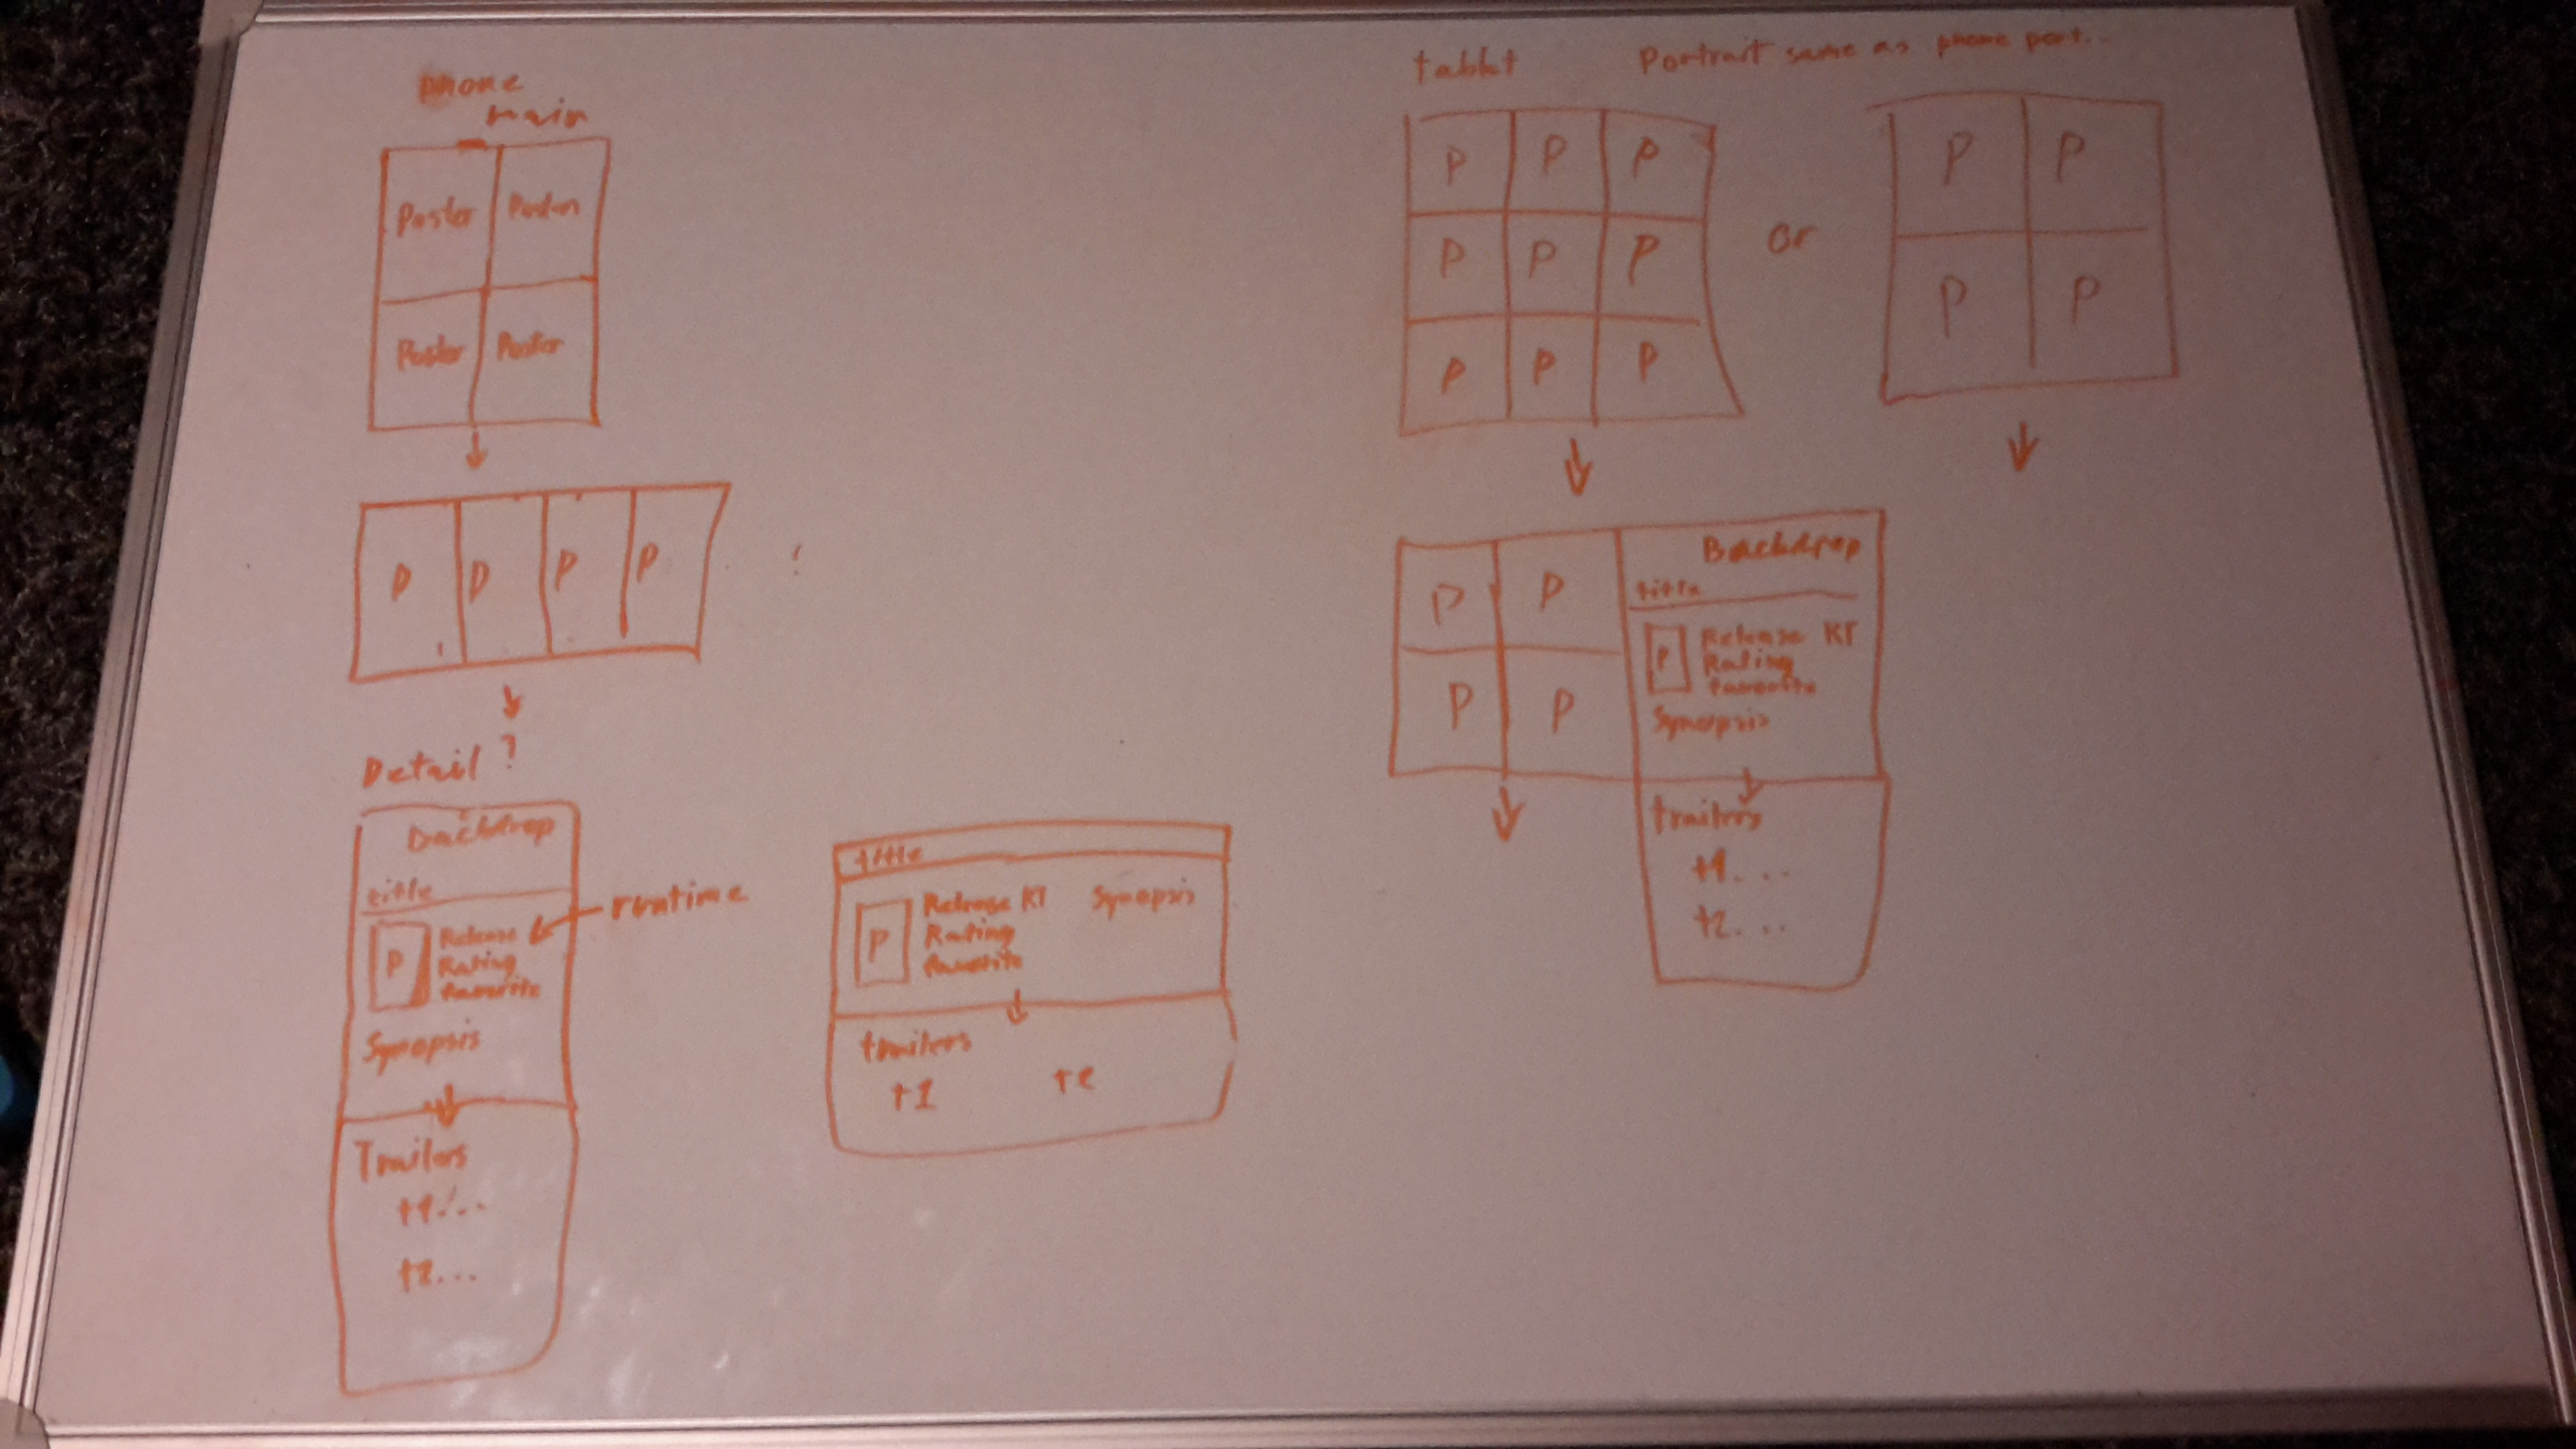 phone
main
Poster Poster
Poster Poster
P P P P
?
Detail
Backdrop
title
runtime
P
Release
Rating
favorite
Synopsis
Trailers
t1...
t2...
title
P
Release RT
Rating
favorite
Synopsis
trailers
t1 t2
tablet
Portrait same as phone port...
P P P
P P P
P P P
or
P P
P P
P P
P P
Backdrop
title
P
Release RT
Rating
favorite
Synopsis
trailers
t1...
t2...